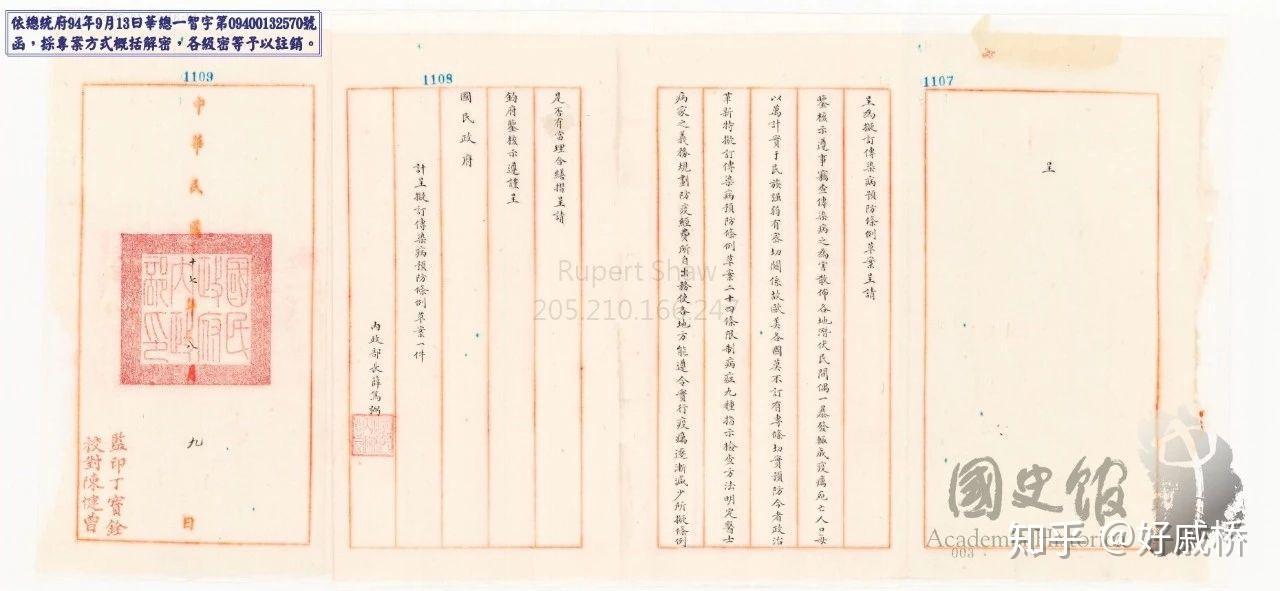 依總統府94年9月13日華總一智字第09400132570號
函，採專案方式概括解密，各級密等予以註銷。
1107
呈
1108
呈為擬訂傳染病預防條例草案呈請
鑒核示遵事竊查傳染病之為害散佈各地潛伏民間偶一暴發輒成疫癘死亡人口每
以萬計實于民族强弱有密切關係故歐美各國莫不訂有專條切實預防今者政治
革新特擬訂傳染病預防條例草案二十四條限制病症九種指示檢查方法明定醫士
病家之義務規劃防疫經費所自出務使各地方能遵令實行疫癘逐漸減少所擬條例
是否有當理合繕摺呈請
鈞府鑒核示遵謹呈
國民政府
計呈擬訂傳染病預防條例草案一件
內政部長薛篤弼
1109
中華民國十七年八月九日
國民政府內政部印
監印丁寶銓
校對陳健曾
Rupert Shaw
205.210.166.247
國史館
Academia Historica
003
知乎 @好戚桥